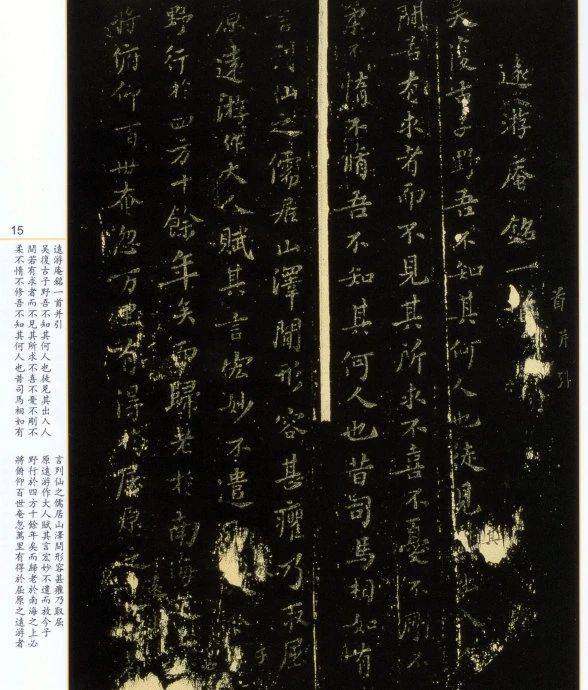 遠游庵銘一首
首并引
吳復古子野吾不知其何人也徒見人
間若有求者而不見其所求不喜不憂不剛不
柔不惰不脩吾不知其何人也昔司馬相如有
言列仙之儒居山澤間形容甚癯乃取屈
原遠游作大人賦其言宏妙不遣子
野行於四方十餘年矣而歸老於南海
將俯仰百世奄忽万里有得於屈原之
15
遠游庵銘一首并引
吳復古子野吾不知其何人也徒見其出入人
間若有求者而不見其所求不喜不憂不剛不
柔不惰不修吾不知其何人也昔司馬相如有
言列仙之儒居山澤間形容甚癯乃取屈
原遠游作大人賦其言宏妙不遣而放今子
野行於四方十餘年矣而歸老於南海之上必
將俯仰百世庵忽萬里有得於屈原之遠游者